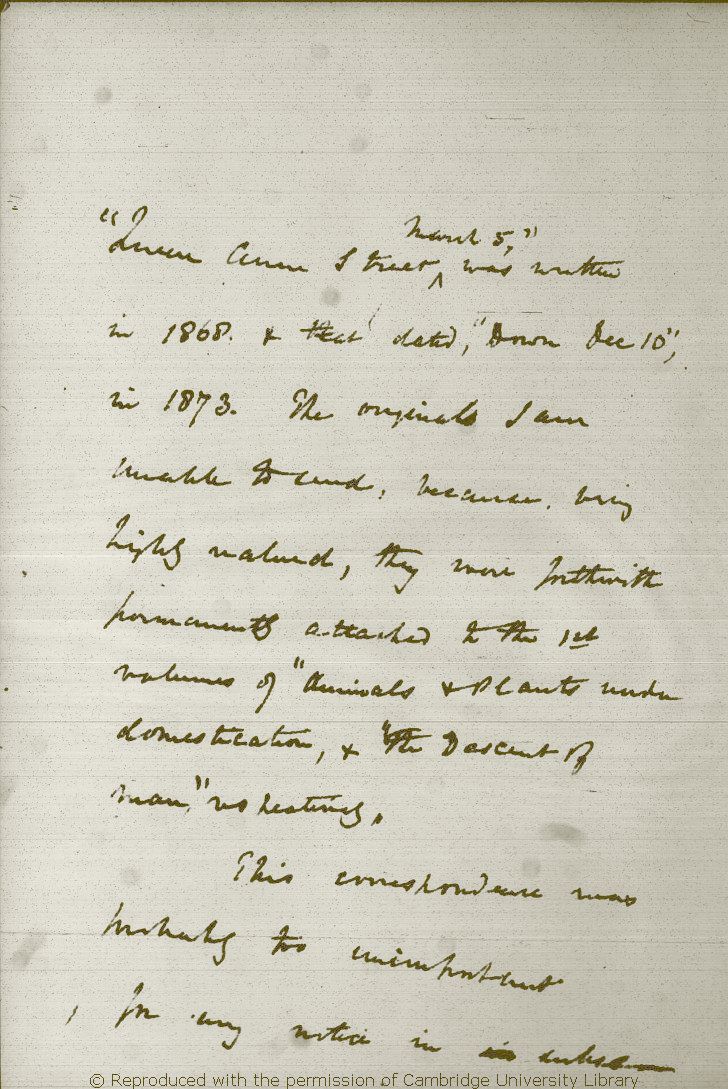 "Queen Anne Street, March 5," was written
in 1868. & that dated, "Down Dec 10",
in 1873. The originals I am
unable to send, because, being
highly valued, they were forthwith
permanently attached to the 1st
volumes of "Animals & Plants under
domestication, & "The Descent of
man," respectively.
This correspondence was
probably too unimportant
for any notice in subse
© Reproduced with the permission of Cambridge University Library